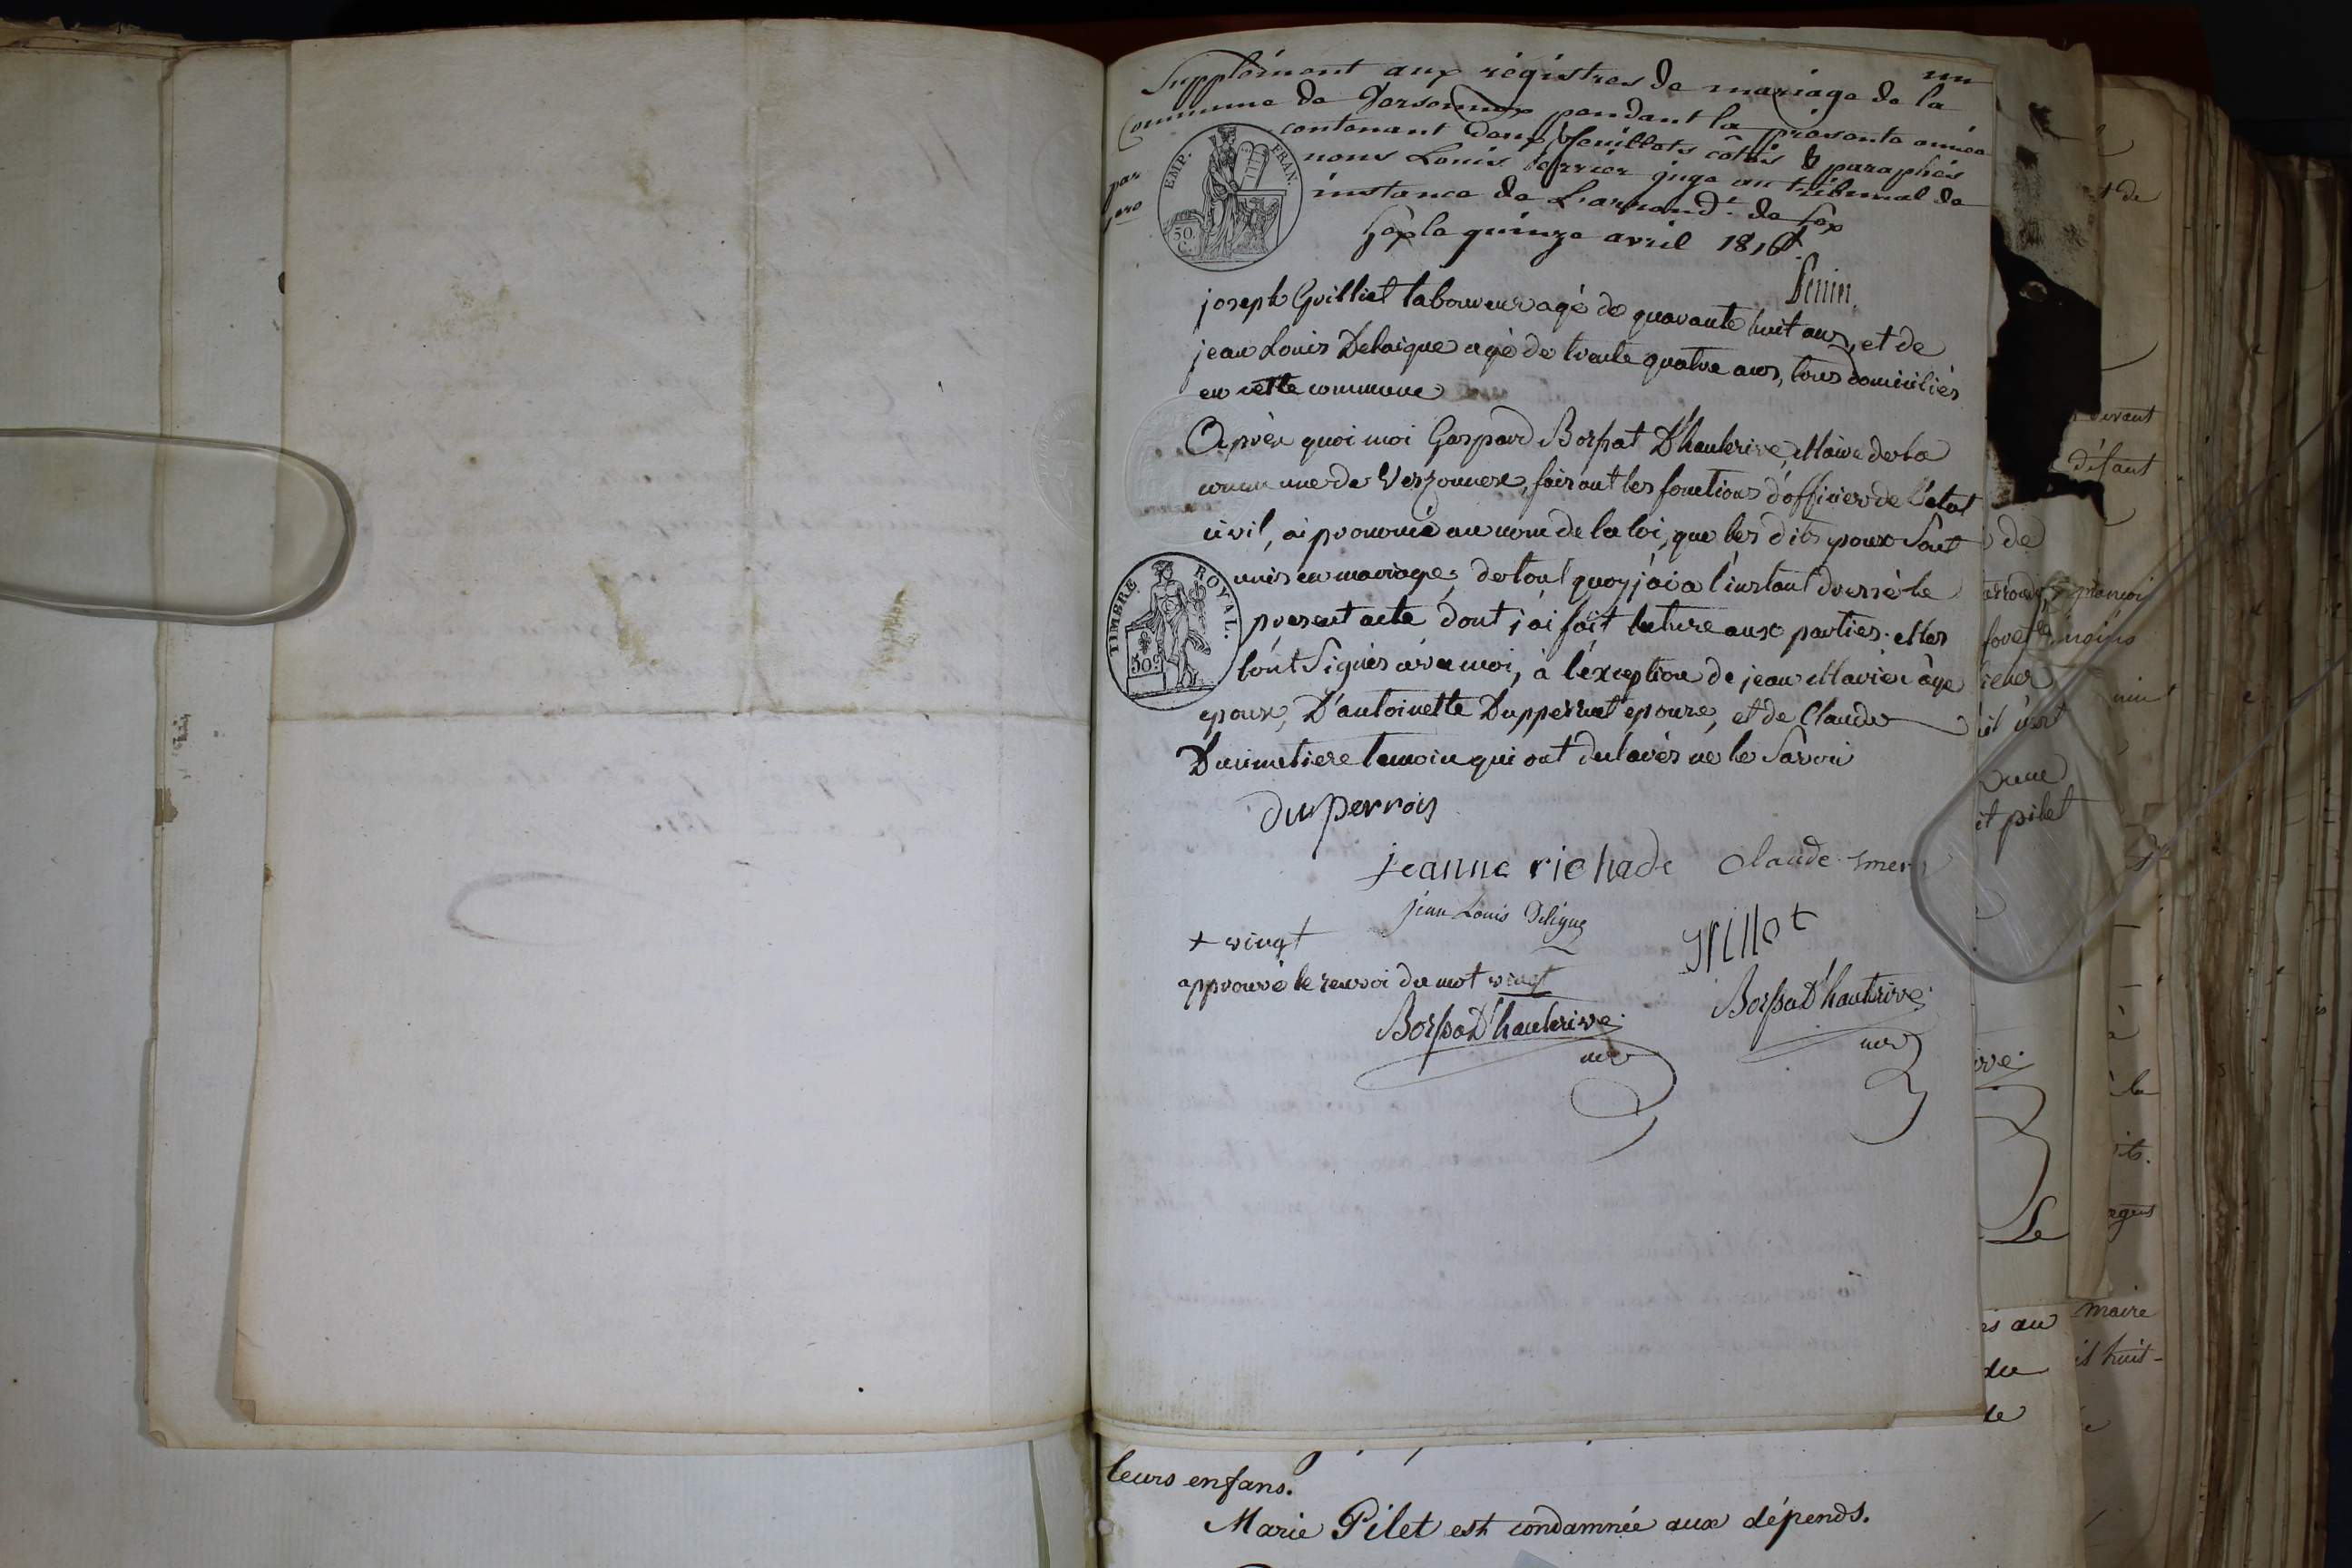 un
Supplément aux régistres de mariage de la
Commune de Versonnex pendant la présente année
contenant deux feuillets côtés & paraphés
par nous Louis juge au tribunal de
pre instance de L'arrond.t de Gex
Gex le quinze avril 1816
EMP. FRAN.
50. C.
joseph Grilliet laboureur agé de quarante huit ans, et de
jean Louis Delaigue agé de trente quatre ans, tous domiciliés
en cette commune
Après quoi moi Gaspard Borsat D'hauterive, Maire de la
commune de Versonnex, faisant les fonctions d'officier de l'état
civil, ai prononcé au nom de la loi, que les dits epoux sont
unis en mariage; de tout quoy j'ai a l'instant dressé le
present acte dont j'ai fait lecture aux parties. Elles
l'ont signés avec moi, à l'exception de jean Marie
epoux, D'antoinette Dupperrut epouse, et de Claude
Ducimetiere temoin qui ont declarés ne le savoir
TIMBRE ROYAL.
50c
duperrois
jeanne richade Claude
jean Louis Deligue
grillet
+ vingt
approuvé le renvoi du mot vingt
Borsat D'hauterive Borsat D'hauterive
leurs enfans.
Marie Pilet est condamnée aux dépends.
t de
devant
défaut
de
il pilet
Le
argent
es au
maire
du
is huit-
de